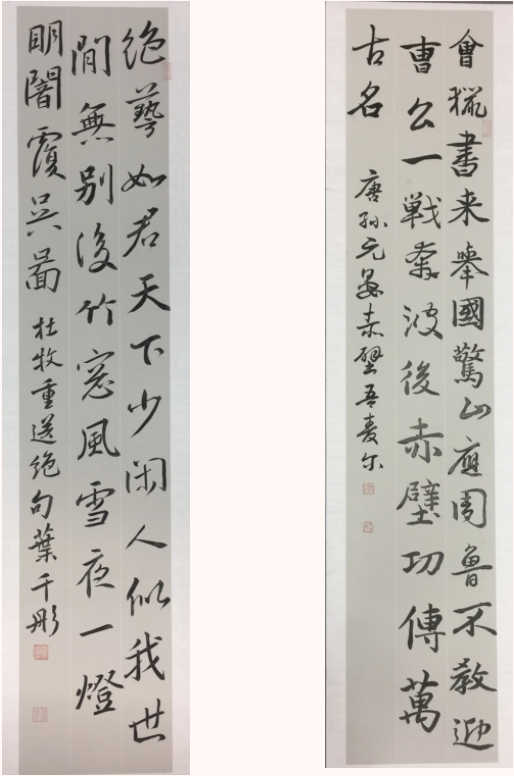 絶藝如君天下少閑人似我世
間無别後竹窓風雪夜一燈
明闇覆吳圖 杜牧重送絶句葉千彤
會獵書来舉國驚只應周魯不教迎
曹公一戰奔波後赤壁功傳萬
古名 唐孫元晏赤壁吾麦尔